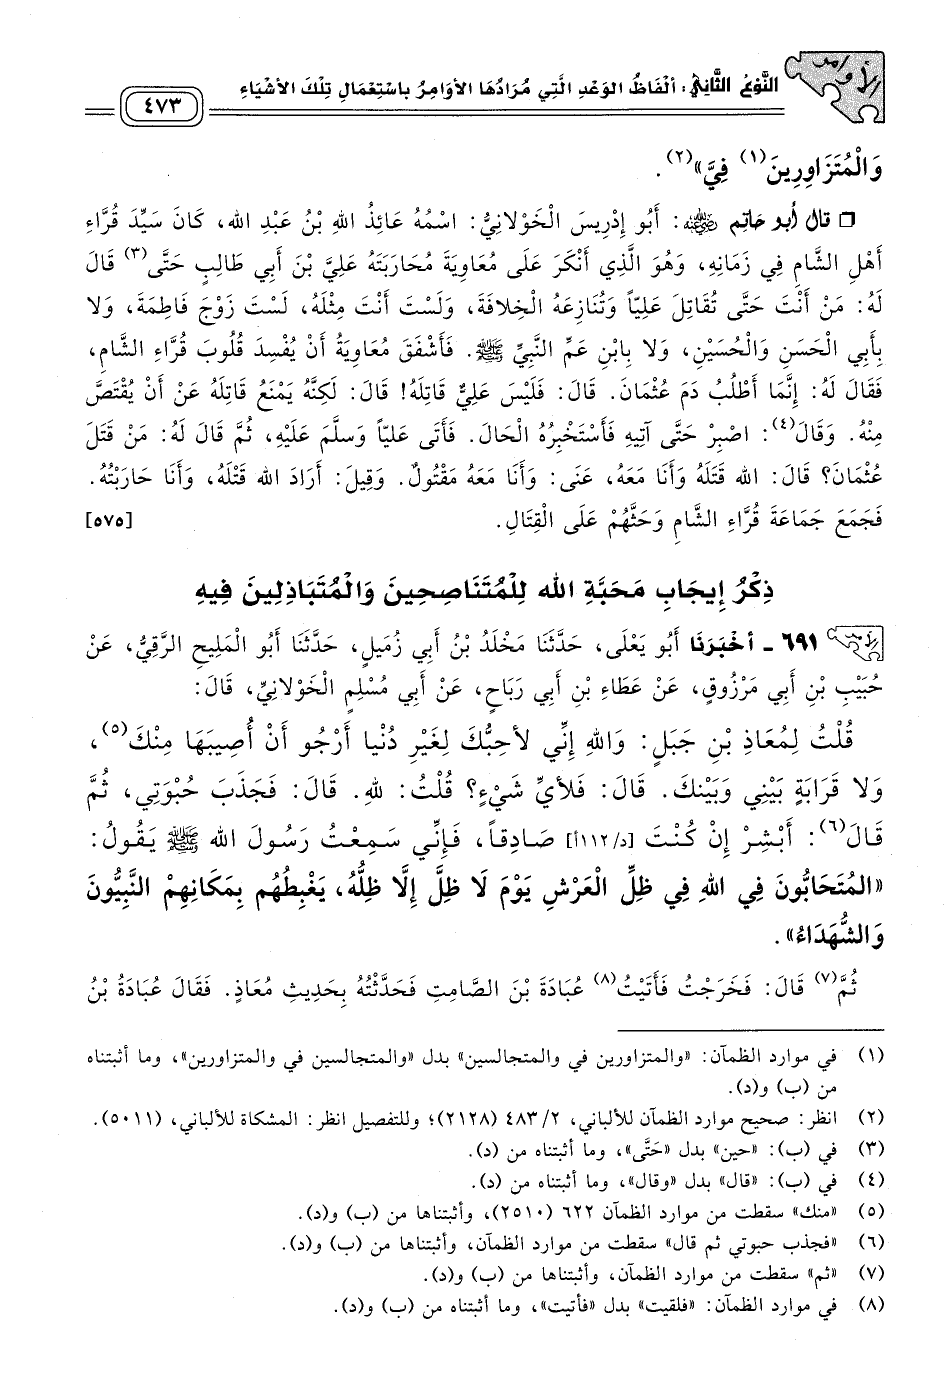 الأوامر
النَّوْعُ الثَّانِيْ: أَلْفَاظُ الوَعْدِ الَّتِي مُرَادُهَا الأَوَامِرُ بِاسْتِعْمَالِ تِلْكَ الأَشْيَاءِ
٤٧٣
وَالْمُتَزَاوِرِينَ(١) فِيَّ»(٢).
❑ قال أبو حاتم ﵁: أَبُو إِدْرِيسَ الْخَوْلَانِيُّ: اسْمُهُ عَائِذُ اللهِ بْنُ عَبْدِ الله، كَانَ سَيِّدَ قُرَّاءِ
أَهْلِ الشَّامِ فِي زَمَانِهِ، وَهُوَ الَّذِي أَنْكَرَ عَلَى مُعَاوِيَةَ مُحَارَبَتَهُ عَلِيَّ بْنَ أَبِي طَالِبٍ حَتَّى(٣) قَالَ
لَهُ: مَنْ أَنْتَ حَتَّى تُقَاتِلَ عَلِيّاً وَتُنَازِعَهُ الْخِلافَةَ، وَلَسْتَ أَنْتَ مِثْلَهُ، لَسْتَ زَوْجَ فَاطِمَةَ، وَلا
بِأَبِي الْحَسَنِ وَالْحُسَيْنِ، وَلا بِابْنِ عَمِّ النَّبِيِّ ﷺ. فَأَشْفَقَ مُعَاوِيَةُ أَنْ يُفْسِدَ قُلُوبَ قُرَّاءِ الشَّامِ،
فَقَالَ لَهُ: إِنَّمَا أَطْلُبُ دَمَ عُثْمَانَ. قَالَ: فَلَيْسَ عَلِيٌّ قَاتِلَهُ! قَالَ: لَكِنَّهُ يَمْنَعُ قَاتِلَهُ عَنْ أَنْ يُقْتَصَّ
مِنْهُ. وَقَالَ(٤): اصْبِرْ حَتَّى آتِيهِ فَأَسْتَخْبِرُهُ الْحَالَ. فَأَتَى عَلِيّاً وَسَلَّمَ عَلَيْهِ، ثُمَّ قَالَ لَهُ: مَنْ قَتَلَ
عُثْمَانَ؟ قَالَ: الله قَتَلَهُ وَأَنَا مَعَهُ، عَنَى: وَأَنَا مَعَهُ مَقْتُولٌ. وَقِيلَ: أَرَادَ الله قَتْلَهُ، وَأَنَا حَارَبْتُهُ.
فَجَمَعَ جَمَاعَةَ قُرَّاءِ الشَّامِ وَحَثَّهُمْ عَلَى الْقِتَالِ. [٥٧٥]
ذِكْرُ إِيجَابِ مَحَبَّةِ الله لِلْمُتَنَاصِحِينَ وَالْمُتَبَاذِلِينَ فِيهِ
٦٩١ - أَخْبَرَنَا أَبُو يَعْلَى، حَدَّثَنَا مَخْلَدُ بْنُ أَبِي زُمَيلٍ، حَدَّثَنَا أَبُو الْمَلِيحِ الرَّقِيُّ، عَنْ
حُبَيْبِ بْنِ أَبِي مَرْزُوقٍ، عَنْ عَطَاءِ بْنِ أَبِي رَبَاحٍ، عَنْ أَبِي مُسْلِمٍ الْخَوْلانِيِّ، قَالَ:
قُلْتُ لِمُعَاذِ بْنِ جَبَلٍ: وَاللهِ إِنِّي لأُحِبُّكَ لِغَيْرِ دُنْيا أَرْجُو أَنْ أُصِيبَهَا مِنْكَ(٥)،
وَلا قَرَابَةٍ بَيْنِي وَبَيْنكَ. قَالَ: فَلأَيِّ شَيْءٍ؟ قُلْتُ: للهِ. قَالَ: فَجَذَبَ حُبْوَتِي، ثُمَّ
قَالَ(٦): أَبْشِرْ إِنْ كُنْتَ [د/١١٢أ] صَادِقاً، فَإِنِّي سَمِعْتُ رَسُولَ الله ﷺ يَقُولُ:
«الْمُتَحَابُّونَ فِي اللهِ فِي ظِلِّ الْعَرْشِ يَوْمَ لَا ظِلَّ إِلَّا ظِلُّهُ، يَغْبِطُهُم بِمَكَانِهِمُ النَّبِيُّونَ
وَالشُّهَدَاءُ».
ثُمَّ(٧) قَالَ: فَخَرَجْتُ فَأَتَيْتُ(٨) عُبَادَةَ بْنَ الصَّامِتِ فَحَدَّثْتُهُ بِحَدِيثِ مُعَاذٍ. فَقَالَ عُبَادَةُ بْنُ
(١) في موارد الظمآن: «والمتزاورين في والمتجالسين» بدل «والمتجالسين في والمتزاورين»، وما أثبتناه
من (ب) و(د).
(٢) انظر: صحيح موارد الظمآن للألباني، ٤٨٣/٢ (٢١٢٨)؛ وللتفصيل انظر: المشكاة للألباني، (٥٠١١).
(٣) في (ب): «حين» بدل «حَتَّى»، وما أثبتناه من (د).
(٤) في (ب): «قال» بدل «وقال»، وما أثبتناه من (د).
(٥) «منك» سقطت من موارد الظمآن ٦٢٢ (٢٥١٠)، وأثبتناها من (ب) و(د).
(٦) «فجذب حبوتي ثم قال» سقطت من موارد الظمآن، وأثبتناها من (ب) و(د).
(٧) «ثم» سقطت من موارد الظمآن، وأثبتناها من (ب) و(د).
(٨) في موارد الظمآن: «فلقيت» بدل «فأتيت»، وما أثبتناه من (ب) و(د).